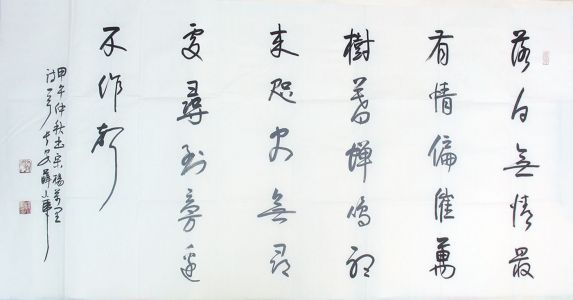 落日無情最
有情偏催萬
樹暮蟬鳴聽
来咫尺無尋
處尋到旁邊
不作聲
甲午仲秋書宋楊萬里
詩一首